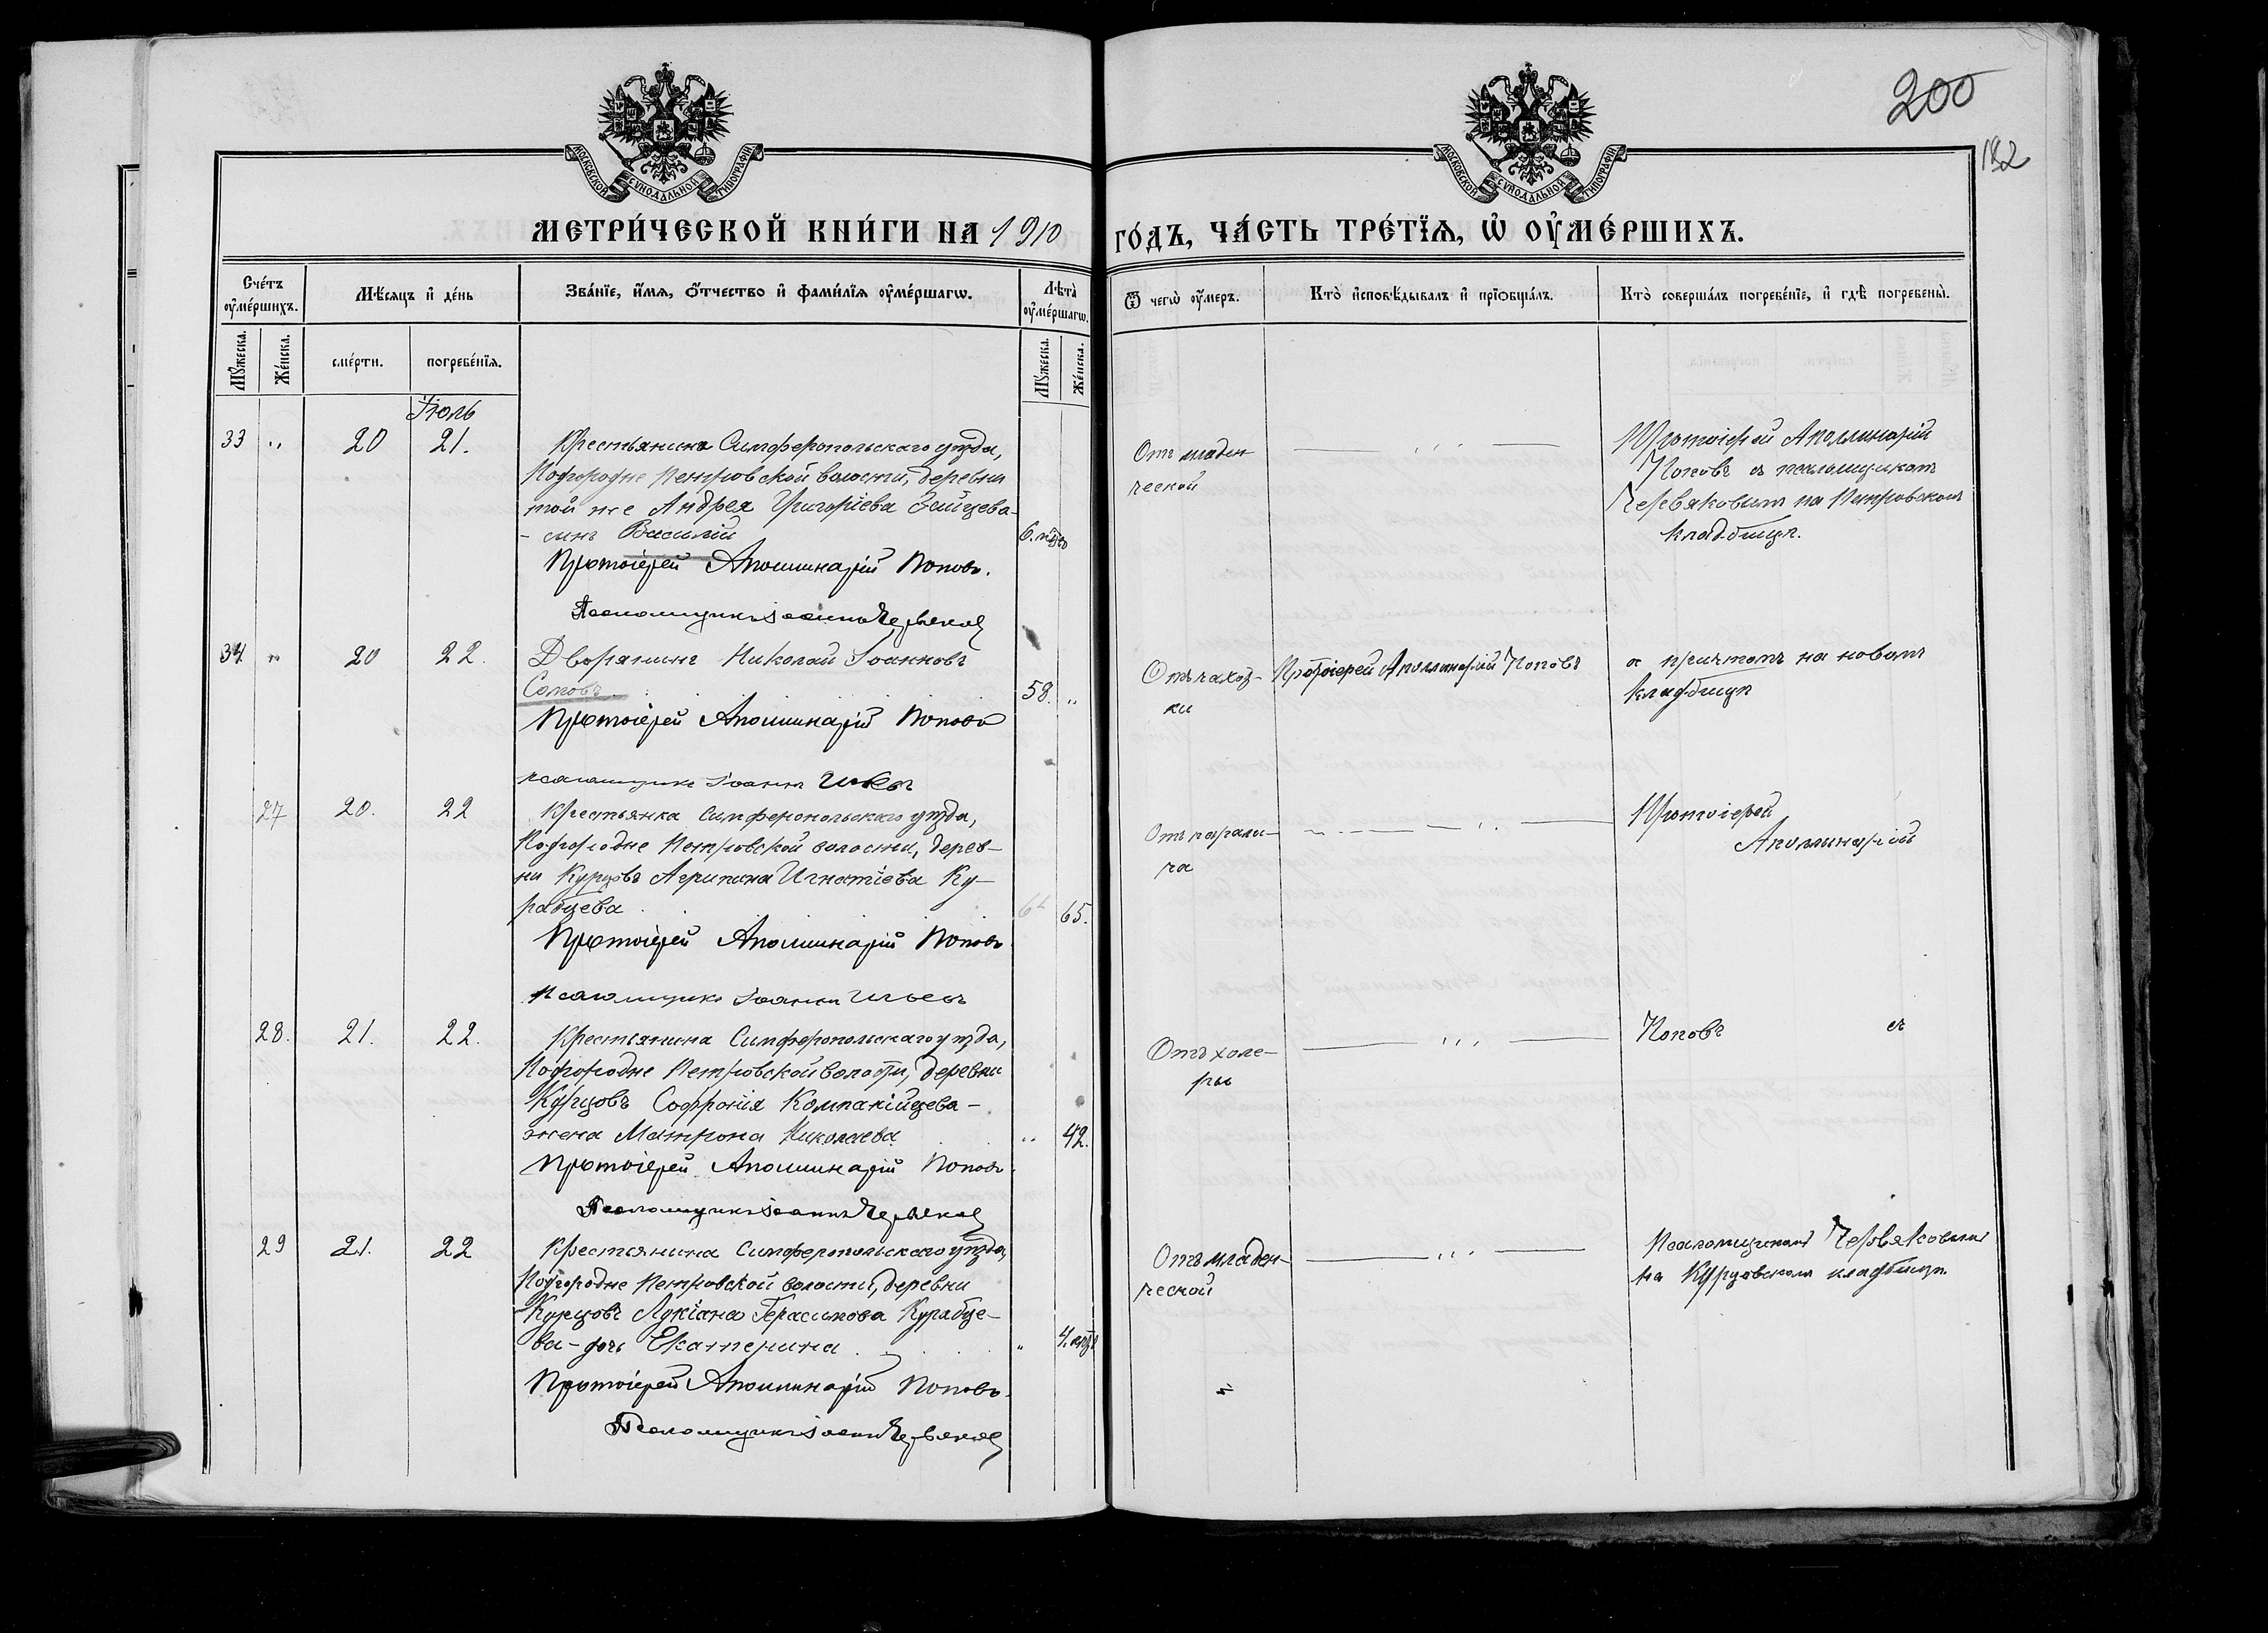 200
192
МОСКОВСКОЙ СУНОДАЛЬНОЙ ТИПОГРАФІИ
МОСКОВСКОЙ СУНОДАЛЬНОЙ ТИПОГРАФІИ
МЕТРИ́ЧЕСКОЙ КНИ́ГИ НА 1910 ГО́ДЪ, ЧА́СТЬ ТРЕ́ТЇѦ, Ѡ҆ ОУ҆МЕ́РШИХЪ.
Сче́тъ оу҆ме́ршихъ.
Мѣ́сяцъ и҆ де́нь
Зва́нїе, и҆́мя, ѻ҆́тчество и҆ фами́лїя оу҆ме́ршагѡ.
Лѣ́та оу҆ме́ршагѡ.
Ѿ чегѡ̀ оу҆́меръ.
Кто̀ и҆сповѣ́дывалъ и҆ прїѻбща́лъ.
Кто̀ соверша́лъ погребе́нїе, и҆ гдѣ̀ погребены̀.
Мꙋ́жеска.
Же́нска.
сме́рти.
погребе́нїя.
Мꙋ́жеска.
Же́нска.
Іюль
33 " 20 21.
Крестьянина Симферопольскаго уѣзда,
Подгородне Петровской волости, деревни
той же Андрея Григоріева Зайцева-
- сынъ Василій
6. мѣс
Протоіерей Аполлинарій Поповъ.
Псаломщикъ Іоаннъ Червяковъ
Отъ младен
ческой
Протоіерей Аполлинарій
Поповъ съ псаломщикомъ
Червяковымъ на Петровскомъ
кладбищѣ.
34 " 20 22.
Дворянинъ Николай Іоанновъ
Сомовъ.
58. "
Протоіерей Аполлинарій Поповъ
псаломщикъ Іоаннъ
Отъ чахот-
ки
Протоіерей Аполлинарій Поповъ
съ причтомъ на новомъ
кладбищѣ
27 20. 22
Крестьянка Симферопольскаго уѣзда,
Подгородне Петровской волости, дерев-
ни Курцовъ Агрипина Игнатіева Ку-
рабцева
65.
Протоіерей Аполлинарій Поповъ
псаломщикъ Іоаннъ
Отъ парали-
ча
Протоіерей
Аполлинарій
28. 21. 22.
Крестьянина Симферопольскаго уѣзда,
Подгородне Петровской волости, деревни
Курцовъ Софронія Компанійцева -
жена Матрона Николаева
" 42.
Протоіерей Аполлинарій Поповъ
Псаломщикъ Іоаннъ Червяковъ
Отъ холе-
ры
Поповъ съ
29 21. 22
Крестьянина Симферопольскаго уѣзда,
Подгородне Петровской волости, деревни
Курцовъ Лукіана Герасимова Курабце-
ва - дочь Екатерина
" 4.
Протоіерей Аполлинарій Поповъ.
Псаломщикъ Іоаннъ Червяковъ
Отъ младен-
ческой
Псаломщикомъ Червяковымъ
на Курцовскомъ кладбищѣ.